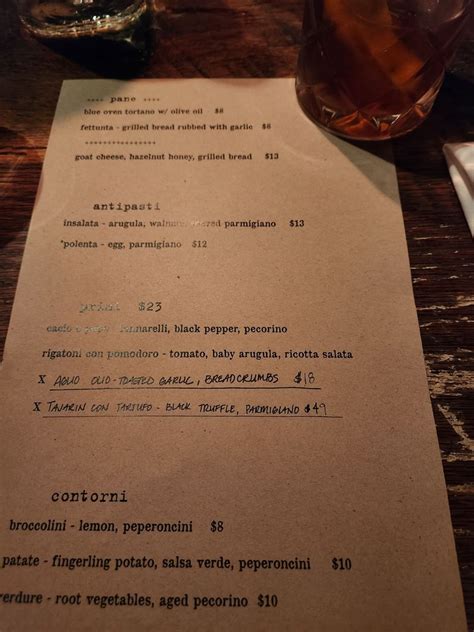 **** pane ****
blue oven tortano w/ olive oil $8
fettunta - grilled bread rubbed with garlic $8
***************
goat cheese, hazelnut honey, grilled bread $13
antipasti
insalata - arugula, parmigiano $13
*polenta - egg, parmigiano $12
primi $23
cacio e pepe black pepper, pecorino
rigatoni con pomodoro - tomato, baby arugula, ricotta salata
X AGLIO OLIO - TOASTED GARLIC, BREADCRUMBS $18
X TAJARIN CON TARTUFO - BLACK TRUFFLE, PARMIGIANO $49
contorni
broccolini - lemon, peperoncini $8
patate - fingerling potato, salsa verde, peperoncini $10
verdure - root vegetables, aged pecorino $10